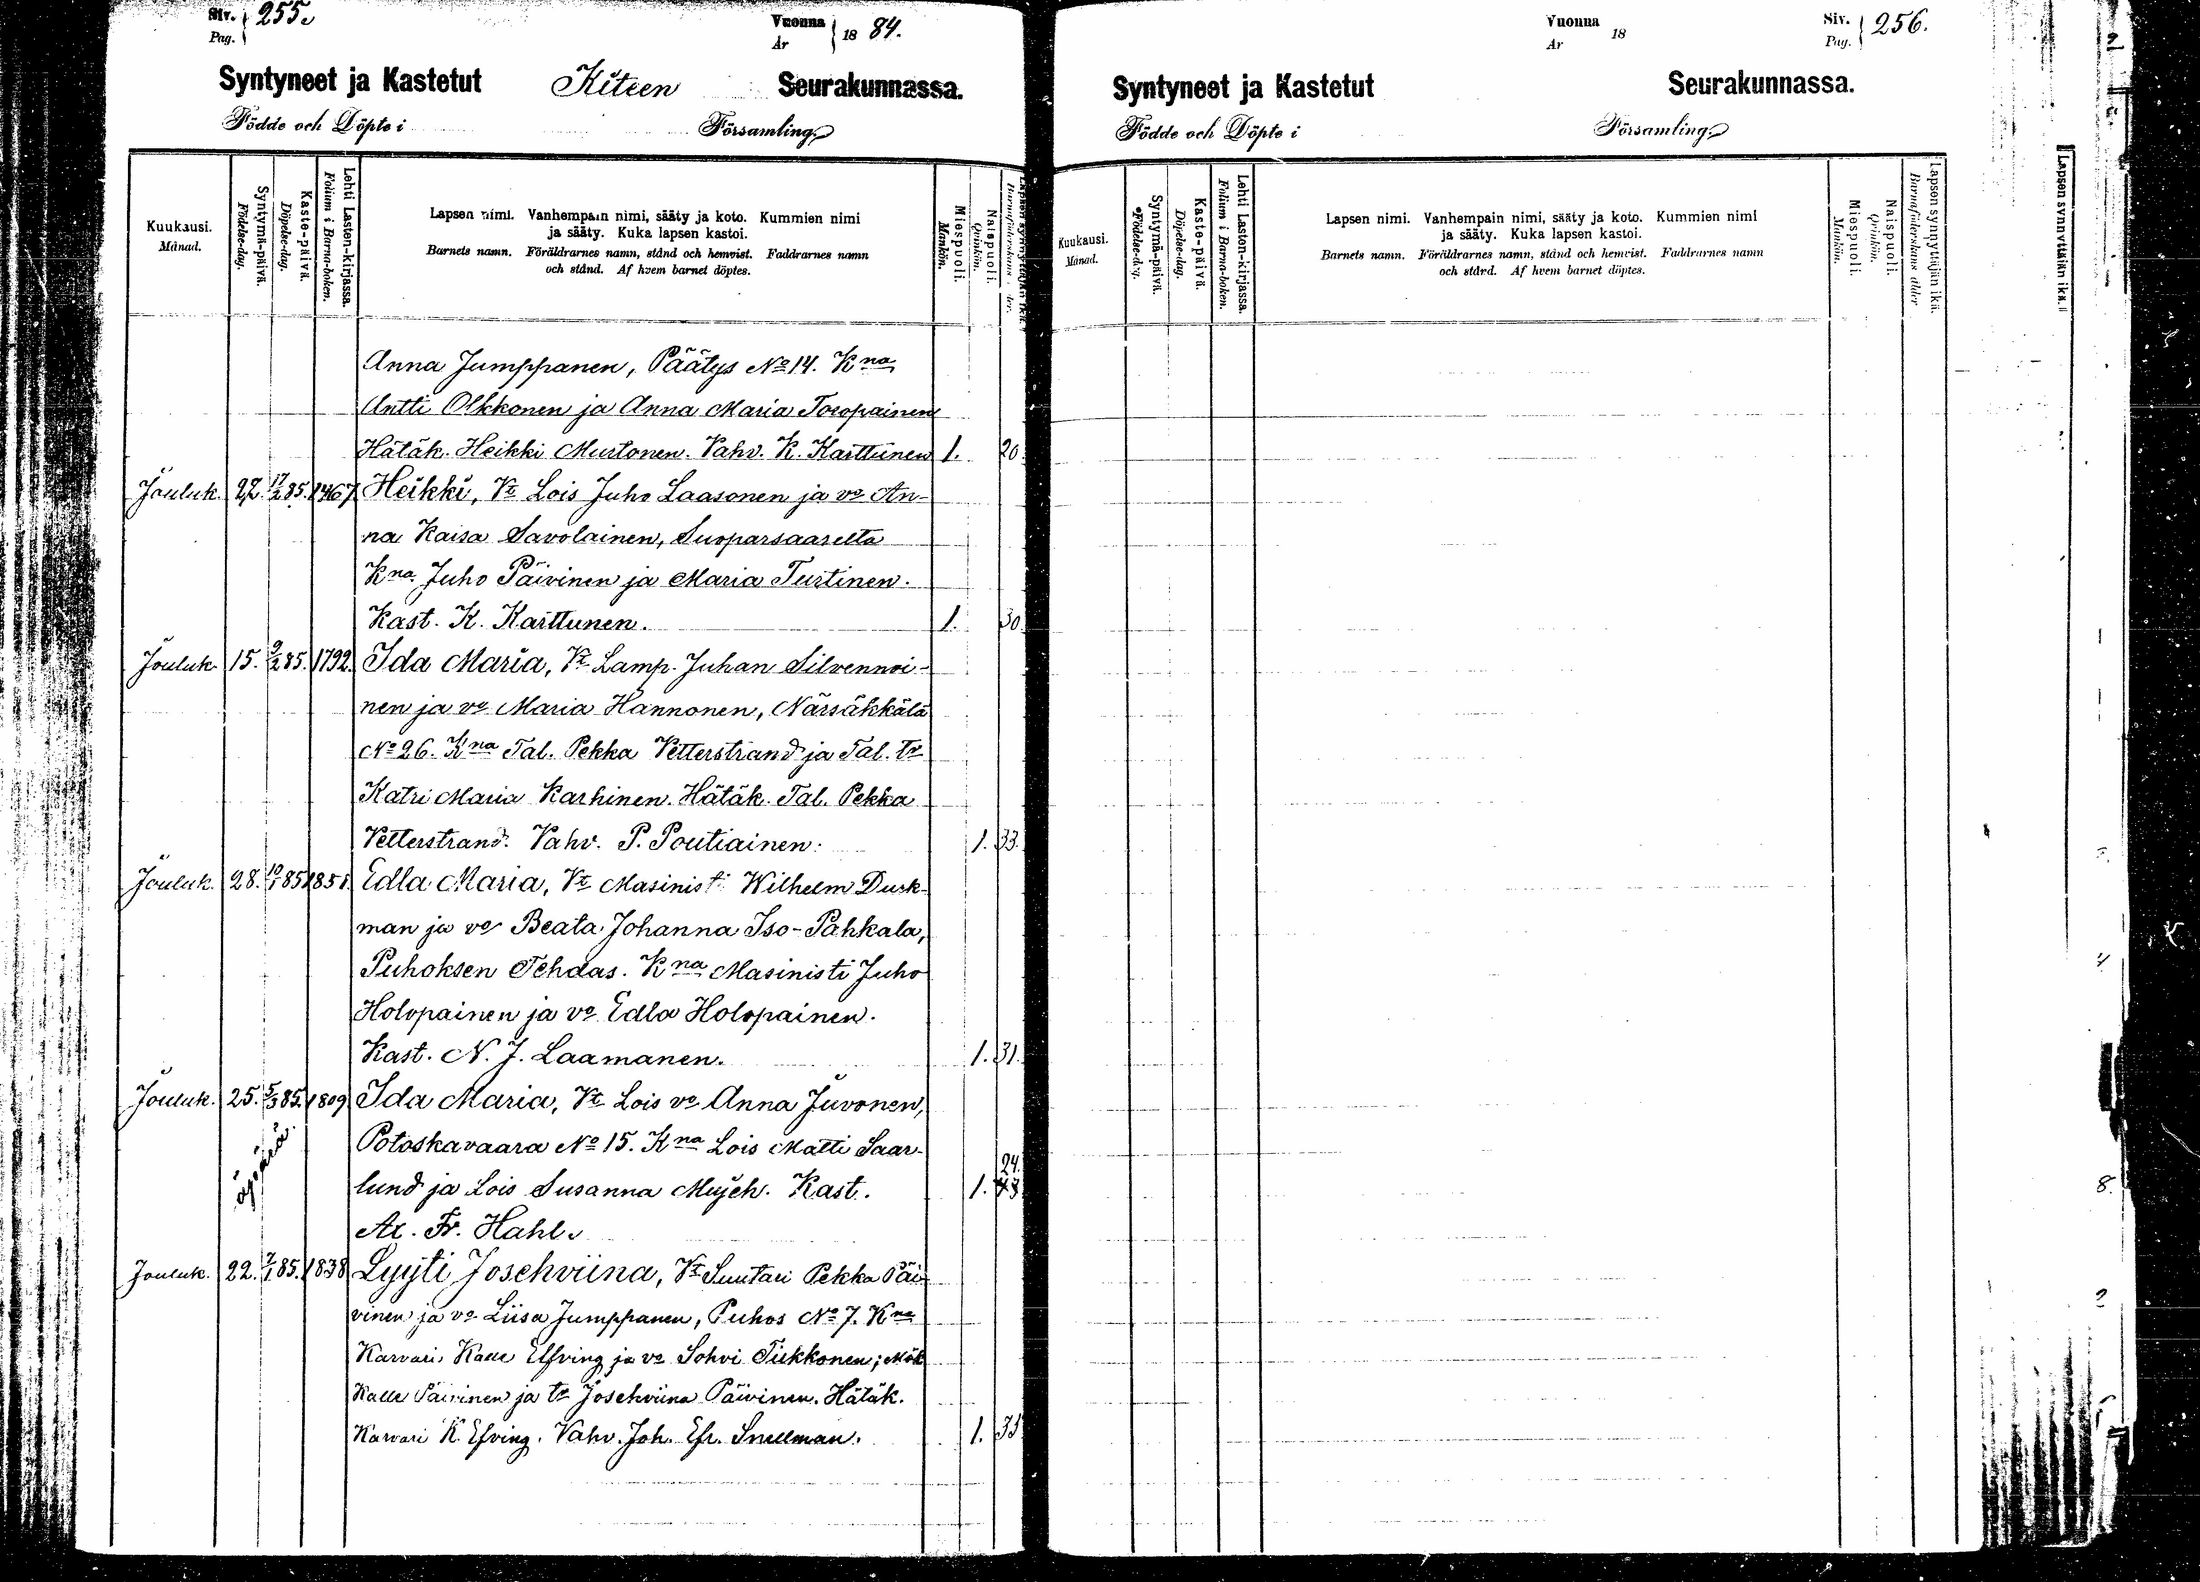 Siv. Pag. 255.
Vuonna År 1884.
Syntyneet ja Kastetut Kiteen Seurakunnassa.
Födde och Döpte i Församling.
Kuukausi. Månad.
Syntymä-päivä. Födelse-dag.
Kaste-päivä. Döpelse-dag.
Lehti Lasten-kirjassa. Folium i Barna-boken.
Lapsen nimi. Vanhempain nimi, sääty ja koto. Kummien nimi
ja sääty. Kuka lapsen kastoi.
Barnets namn. Föräldrarnes namn, stånd och hemvist. Faddrarnes namn
och stånd. Af hvem barnet döptes.
Miespuoli. Mankön.
Naispuoli. Qvinkön.
Anna Jumppanen, Päätys No 14. Kna
Antti Olkkonen ja Anna Maria Toropainen
Hätäk. Heikki Murtonen. Vahv. K. Karttunen 1. 20.
Jouluk. 27. 17/2 85. 1467 Heikki, Vt Lois Juho Laasonen ja vo An-
na Kaisa Savolainen, Suoparsaarelta
Kna Juho Päivinen ja Maria Turtinen.
Kast. K. Karttunen. 1. 30.
Jouluk. 15. 9/2 85. 1792. Ida Maria, Vt Lamp. Juhan Silvennoi-
nen ja vo Maria Hannonen, Närsäkkälä
No 26. Kna Tal. Pekka Vetterstrand ja Tal. tr
Katri Maria Karhinen. Hätäk. Tal. Pekka
Vetterstrand. Vahv. P. Poutiainen. 1. 33.
Jouluk. 28. 85 1851. Edla Maria, Vt Masinisti Wilhelm Dusk-
man ja vo Beata Johanna Iso-Pahkala,
Puhoksen Tehdas. Kna Masinisti Juho
Holopainen ja vo Edla Holopainen.
Kast. N. J. Laamanen. 1. 31.
Jouluk. 25. 5/3 85. 1809 Ida Maria, Vt Lois vo Anna Juvonen,
Potoskavaara No 15. Kna Lois Matti Saar-
24.
äpärä
lund ja Lois Susanna Mujeh. Kast. 1.
Ax. Fr. Hahl.
Jouluk. 22. 7/1 85. 1838 Lyyti Josehviina, Vt Suutari Pekka Päi-
vinen ja vo Liisa Jumppanen, Puhos No 7. Kna
Karvari Kalle Elfving ja vo Sohvi Tiikkonen; Mök
Kalle Päivinen ja tr Josehviina Päivinen. Hätäk.
Karvari K. Efving. Vahv. Joh. Efr. Snellman. 1. 35
Vuonna År 18
Siv. Pag. 256.
Syntyneet ja Kastetut Seurakunnassa.
Födde och Döpte i Församling.
Kuukausi. Månad.
Syntymä-päivä. Födelse-dag.
Kaste-päivä. Döpelse-dag.
Lehti Lasten-kirjassa. Folium i Barna-boken.
Lapsen nimi. Vanhempain nimi, sääty ja koto. Kummien nimi
ja sääty. Kuka lapsen kastoi.
Barnets namn. Föräldrarnes namn, stånd och hemvist. Faddrarnes namn
och stånd. Af hvem barnet döptes.
Miespuoli. Mankön.
Naispuoli. Qvinkön.
Lapsen synnyttäjän ikä. Barnaföderskans ålder
Lapsen synnyttäjän ikä.